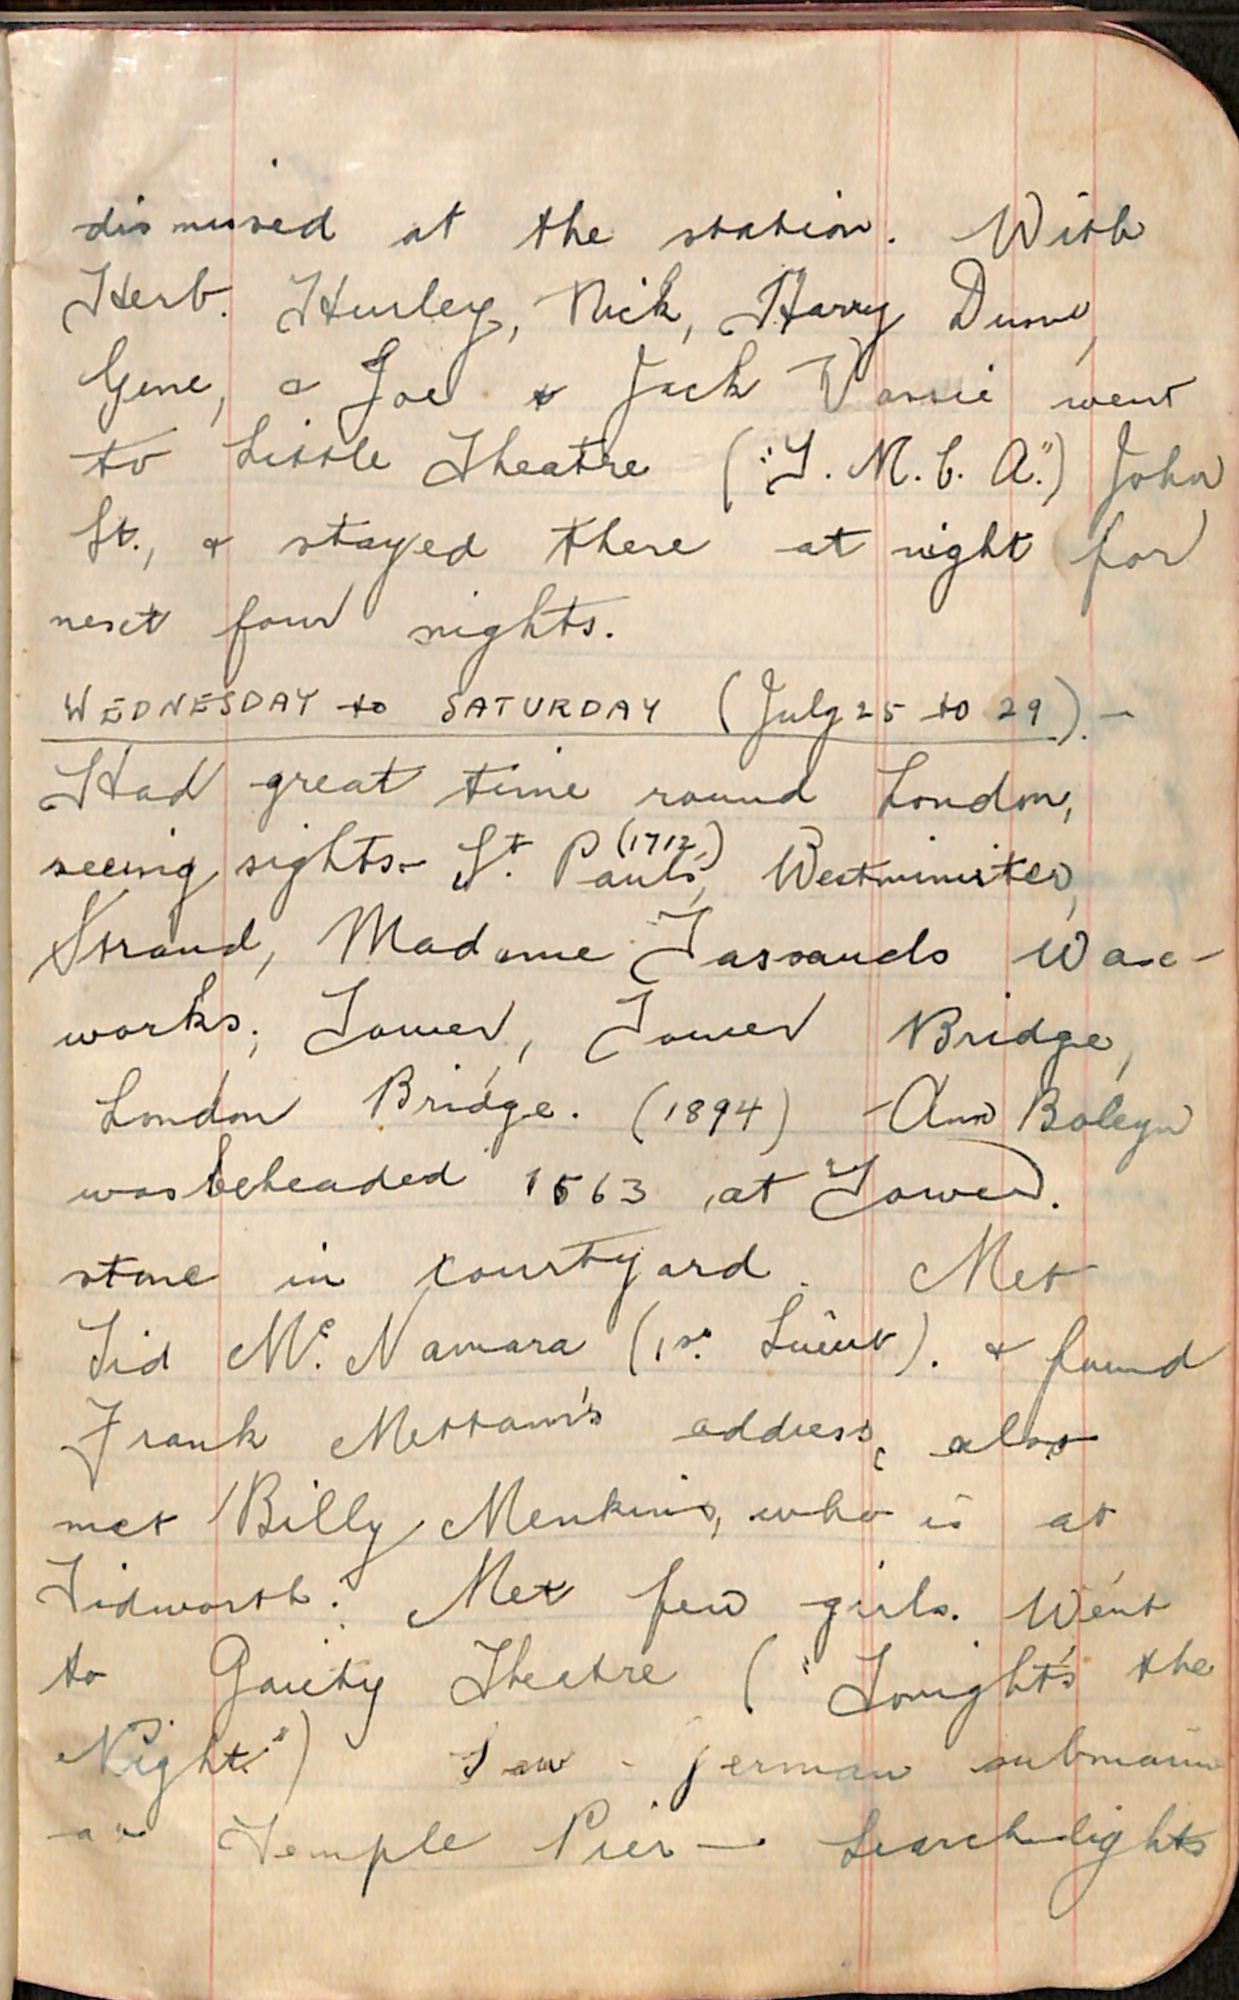 dismissed at the station. With
Herb. Hurley, Nick, Harry Dunne,
Gene, & Joe & Jack Vassie went
to Little Theatre ("Y.M.C.A.") John
St., & stayed there at night for
next four nights.
WEDNESDAY to SATURDAY (July 25 to 29). –
Had great time round London,
seeing sights – St. Paul's, (1712,) Westminister,
Strand, Madame Tassauds Wax-
works; Tower, Tower Bridge,
London Bridge. (1894) – Ann Boleyn
was beheaded 1563 at Tower.
stone in courtyard. Met
Sid Mc. Namara (1st. Lieut). & found
Frank Mettam's address, also
met Billy Menkins, who is at
Tidworth. Met few girls. Went
to Gaiety Theatre ("Tonight's the
Night.") Saw german submarine
at Temple Pier — Searchlights